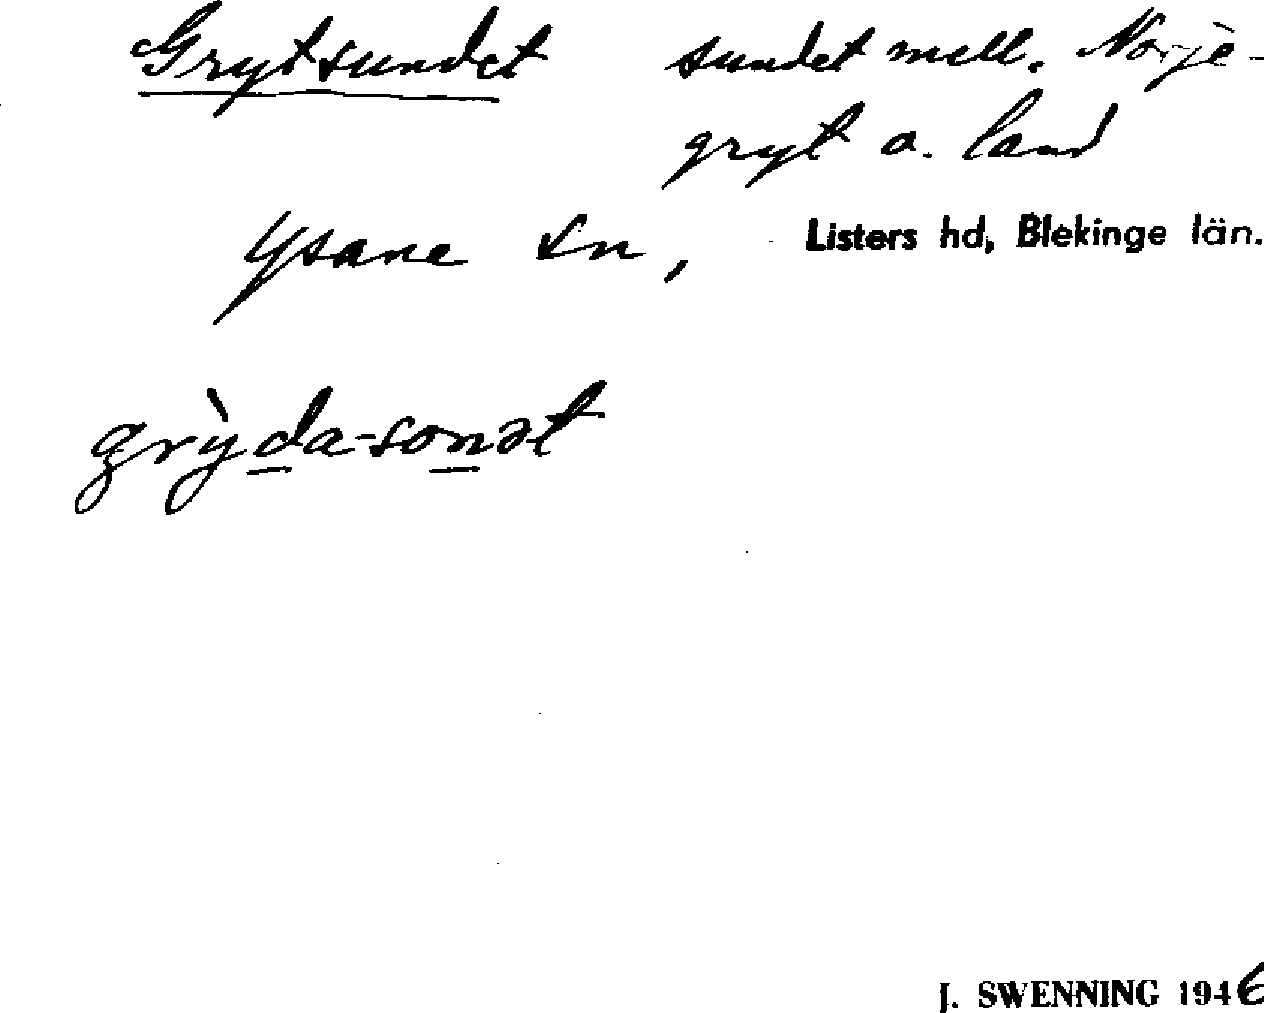 Grytsundet sundet mell. Norje-
gryt o. land
Ysane sn, Listers hd, Blekinge län.
grỳda-sonət
J. SWENNING 1946